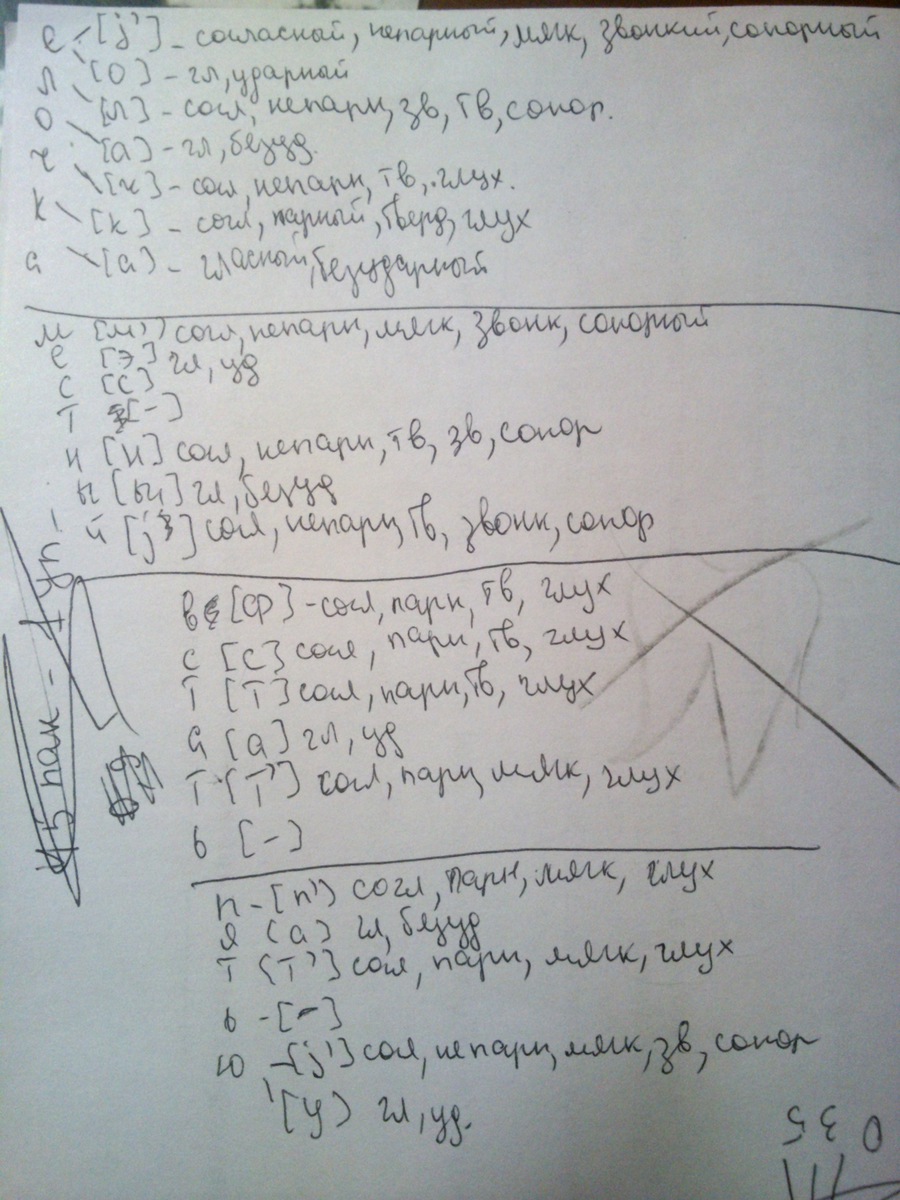 е - [j'] - согласный, непарный, мягк, звонкий, сонорный
л [О] - гл, ударный
о [л] - согл, непарн, зв, тв, сонор.
ч [а] - гл, безуд.
[ч] - согл, непарн, тв, глух.
к [к] - согл, парный, тверд, глух
а [а] - гласный, безударный
м [м') согл, непарн, мягк, звонк, сонорный
е [э] гл, уд
с [с]
т [-]
н [н] согл, непарн, тв, зв, сонор
ы [ы] гл, безуд
й [j'] согл, непарн, тв, звонк, сонор
5 пак - 1 уп!
в [ф] - согл, парн, тв, глух
с [с] согл, парн, тв, глух
т [т] согл, парн, тв, глух
а [а] гл, уд
т [т') согл, парн, мягк, глух
ь [-]
п - [п') согл, парн, мягк, глух
я (а) гл, безуд
т [т'] согл, парн, мягк, глух
ь - [-]
ю - [j'] согл, непарн, мягк, зв, сонор
[у) гл, уд.
0 35